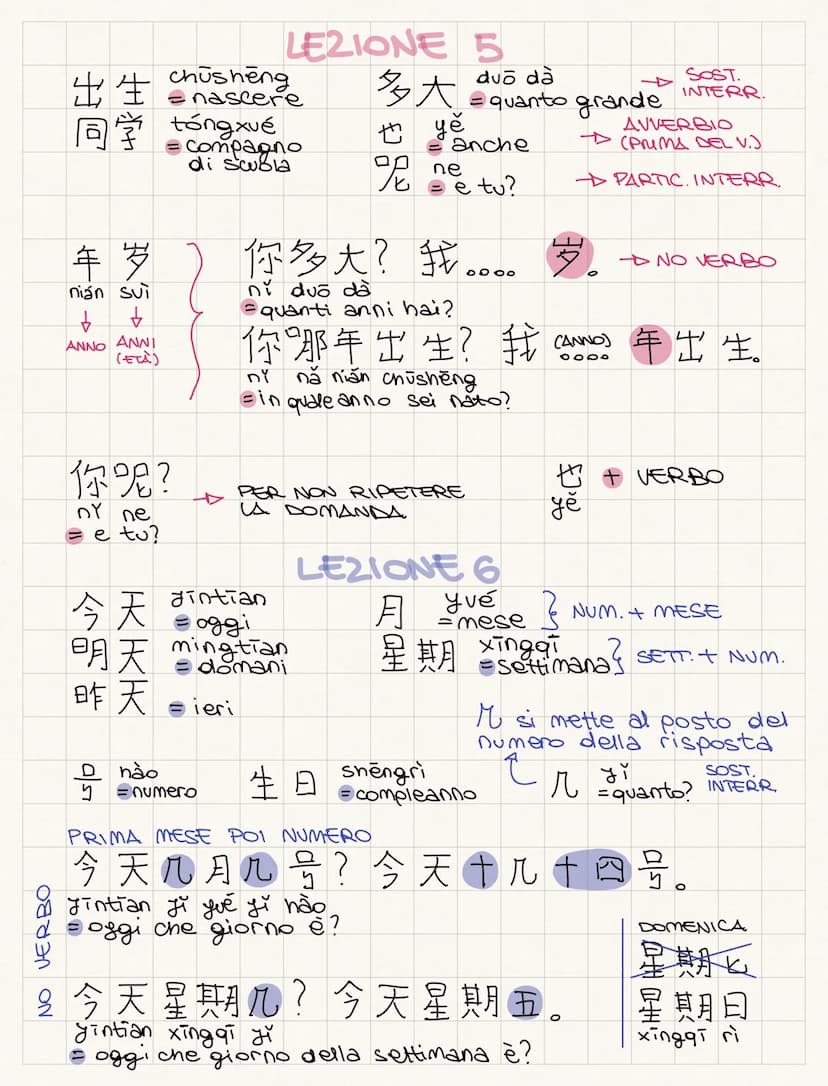 LEZIONE 5
出生 chūshēng
= nascere
同学 tóngxué
= compagno
di scuola
多大 duō dà
= quanto grande → SOST. INTERR.
也 yě
= anche → AVVERBIO (PRIMA DEL V.)
呢 ne
= e tu? → PARTIC. INTERR.
年 岁
nián suì
↓ ↓
ANNO ANNI (ETÀ)
你多大? 我.... 岁。 → NO VERBO
nǐ duō dà
= quanti anni hai?
你哪年出生? 我 (ANNO) .... 年出生。
nǐ nǎ nián chūshēng
= in quale anno sei nato?
你呢?
nǐ ne
= e tu?
→ PER NON RIPETERE
LA DOMANDA
也 + VERBO
yě
LEZIONE 6
今天 jīntīan
= oggi
明天 mingtīan
= domani
昨天
= ieri
月 yvé
= mese } NUM. + MESE
星期 xīngqī
= settimana } SETT. + NUM.
几 si mette al posto del
numero della risposta
号 hào
= numero
生日 shēngrì
= compleanno
几 jǐ
= quanto? SOST. INTERR.
PRIMA MESE POI NUMERO
今天几月几号? 今天十几十四号。
jīntīan jǐ yué jǐ hào
= oggi che giorno è?
NO VERBO
今天星期几? 今天星期五。
jīntīan xīngqī jǐ
= oggi che giorno della settimana è?
DOMENICA
星期七
星期日
xīngqī rì